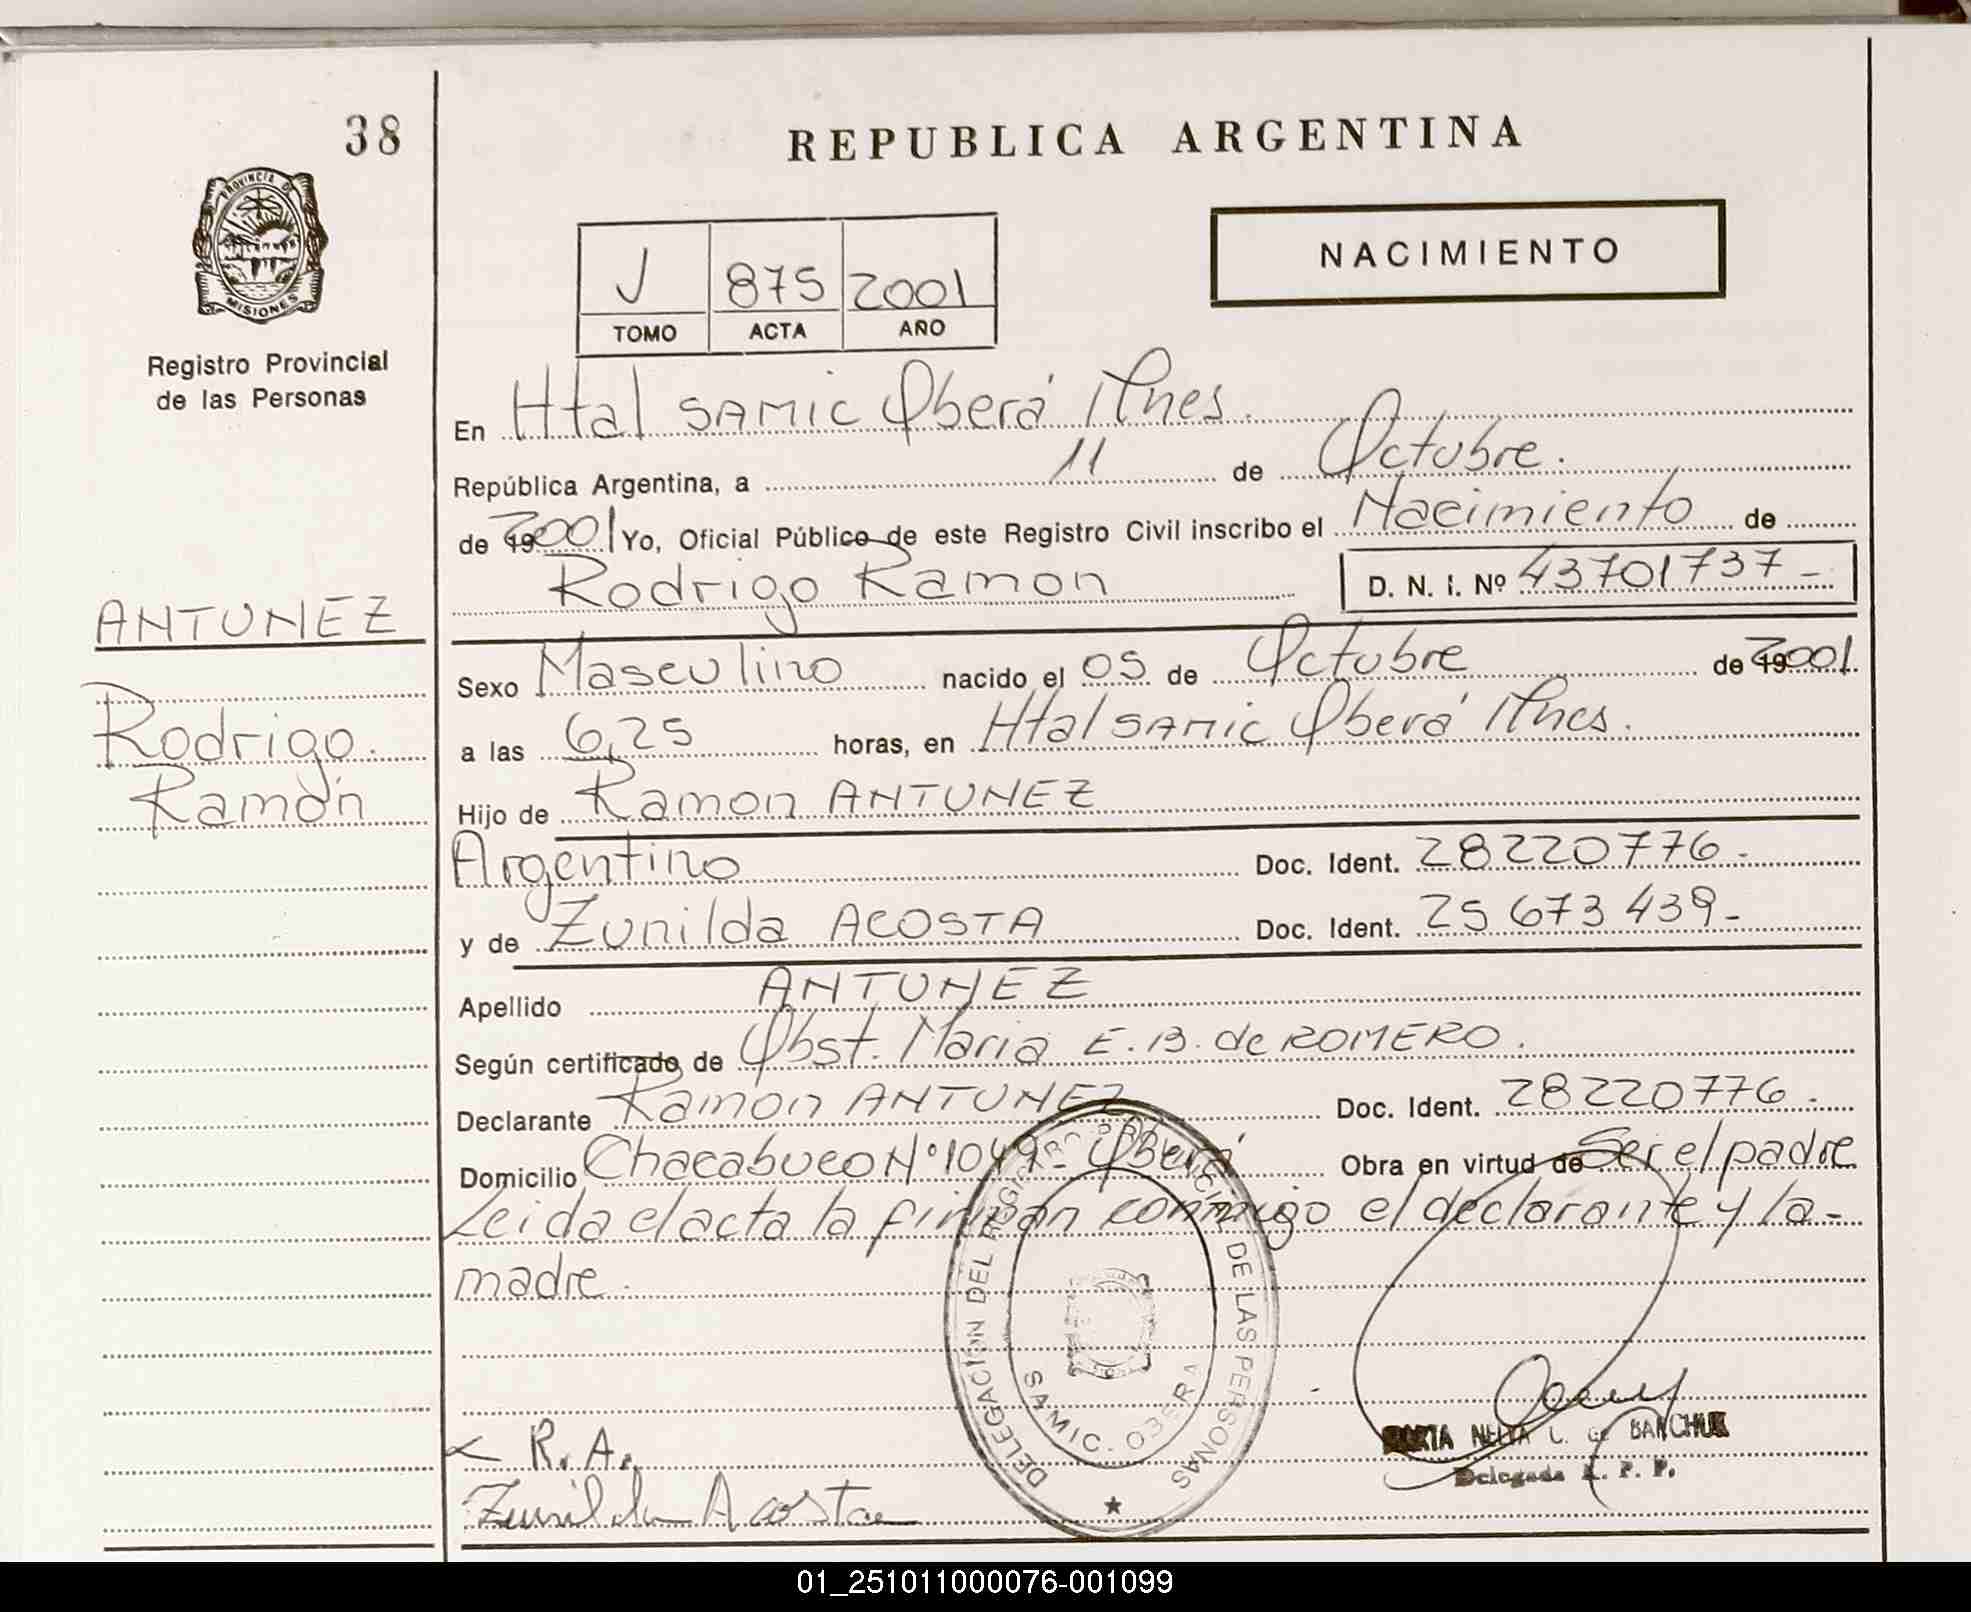 38
REPUBLICA ARGENTINA
PROVINCIA DE
MISIONES
Registro Provincial
de las Personas
NACIMIENTO
J 875 2001
TOMO ACTA AÑO
En Htal SAMIC Oberá Mnes.
República Argentina, a 11 de Octubre.
de 2001 Yo, Oficial Público de este Registro Civil inscribo el Nacimiento de
Rodrigo Ramon D. N. I. Nº 43701737-
ANTUNEZ
Rodrigo.
Ramón
Sexo Masculino nacido el 05 de Octubre de 2001.
a las 6,25 horas, en Htal SAMIC Oberá Mnes.
Hijo de Ramon ANTUNEZ
Argentino Doc. Ident. 28220776.
y de Zunilda ACOSTA Doc. Ident. 25673439-
Apellido ANTUNEZ
Según certificado de Obst. Maria E. B. de ROMERO.
Declarante Ramon ANTUNEZ Doc. Ident. 28220776.
Domicilio Chacabuco Nº 1049- Oberá Obra en virtud de Ser el padre
Leida el acta la firman conmigo el declarante y la-
madre.
DELEGACIÓN DEL REGISTRO PROVINCIAL DE LAS PERSONAS
SAMIC. OBERA
R. A.
Zunilda Acosta
NELIDA L. de BANCHUK
Delegada R. P. P.
01_251011000076-001099